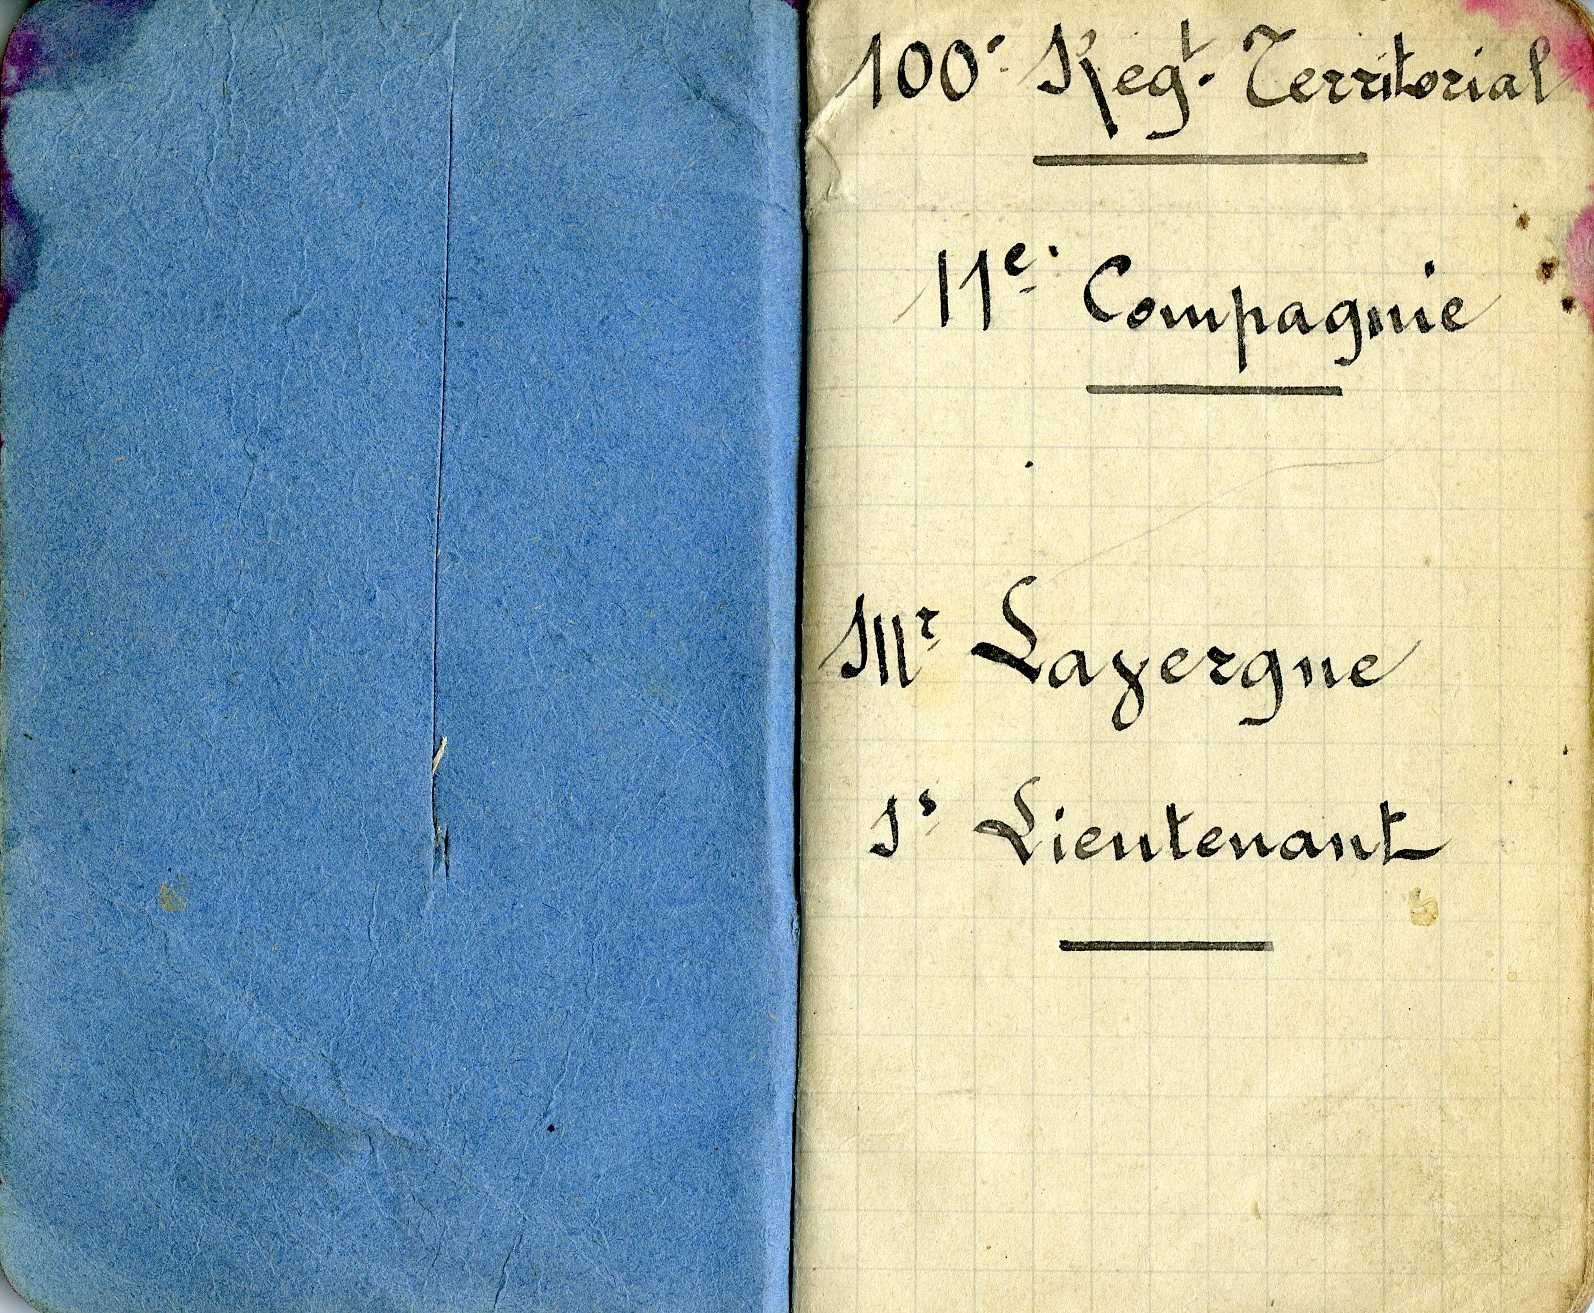 100e Regt. Territorial
11e. Compagnie
Mr Lavergne
Ss Lieutenant